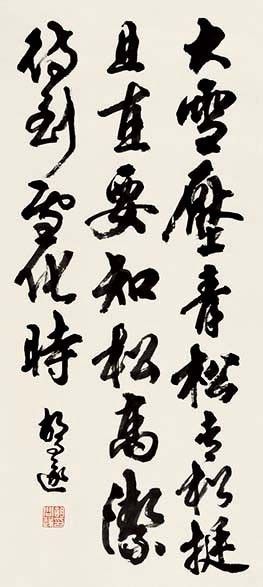 大雪壓青松青松挺
且直要知松高潔
待到雪化時